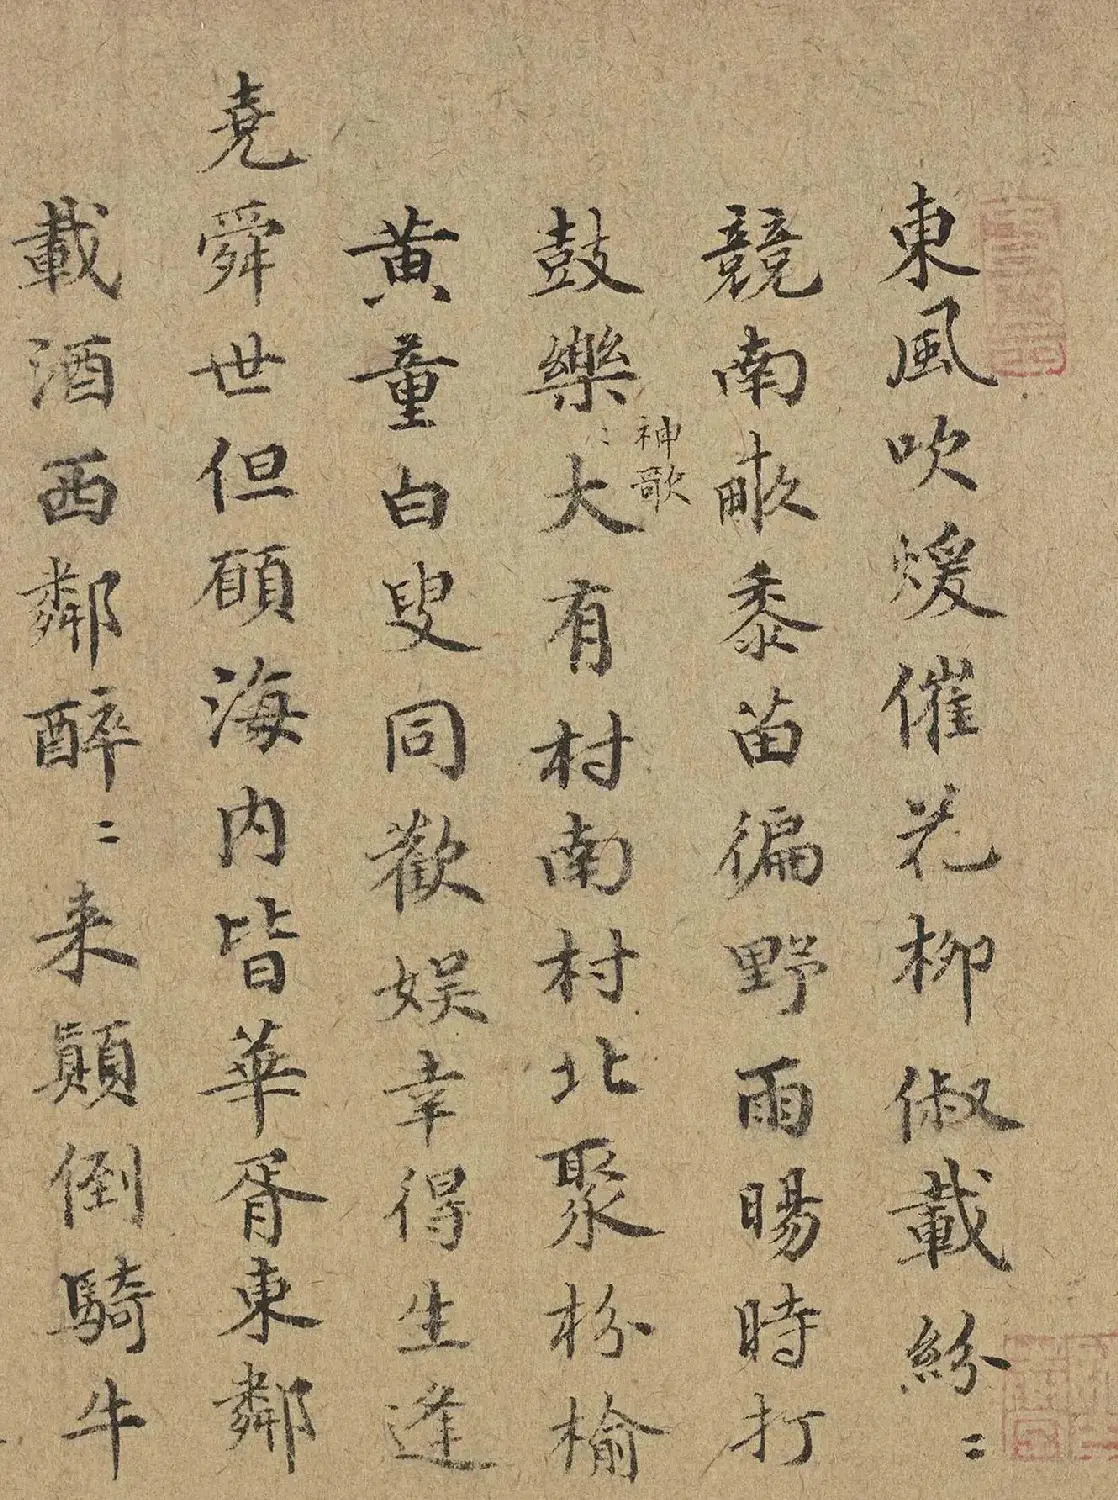 東風吹煖催花柳俶載紛〻
競南畝黍苗徧野雨暘時打
鼓樂〻神歌大有村南村北聚枌榆
黄童白叟同歡娱幸得生逢
堯舜世但願海内皆華胥東鄰
載酒西鄰醉〻来顛倒騎牛